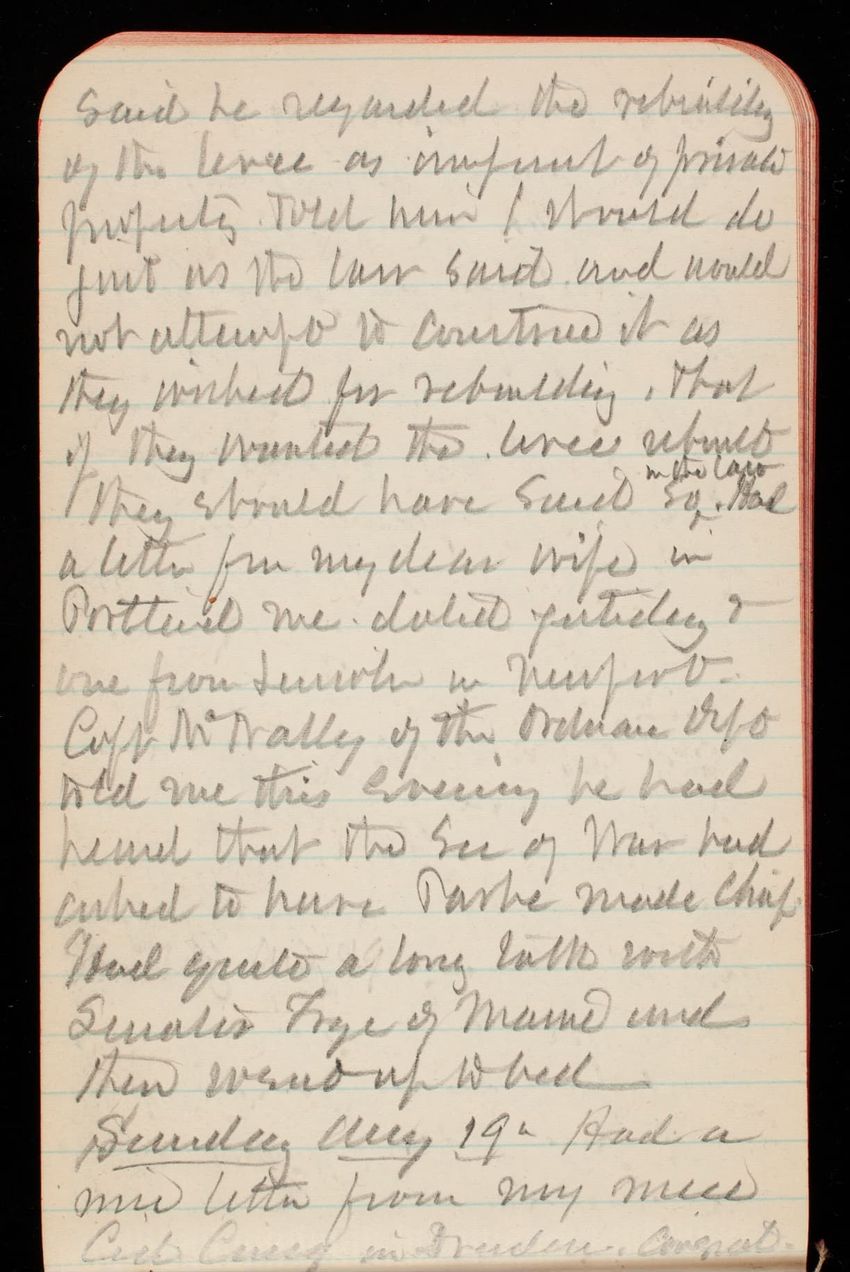 said he regarded the rebuilding
of the levee as improvmt of private
property. Told him I should do
just as the law said and would
not attempt to construe it as
they wished for rebuilding, that
if they wanted the levee rebuilt
they should have said so in the law. Had
a letter from my dear wife in
Portland Me. dated yesterday &
one from Lincoln in Newport.
Capt McNally of the Ordnance Dept
told me this evening he had
heard that the Sec of War had
asked to have Parke made Chief.
Had quite a long talk with
Senator Frye of Maine and
then went up to bed
Sunday Aug 19th Had a
nice letter from my niece
in Dresden.